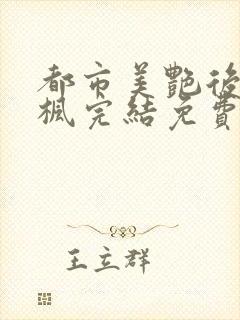 都市美艷後
楓完結免費
王立群